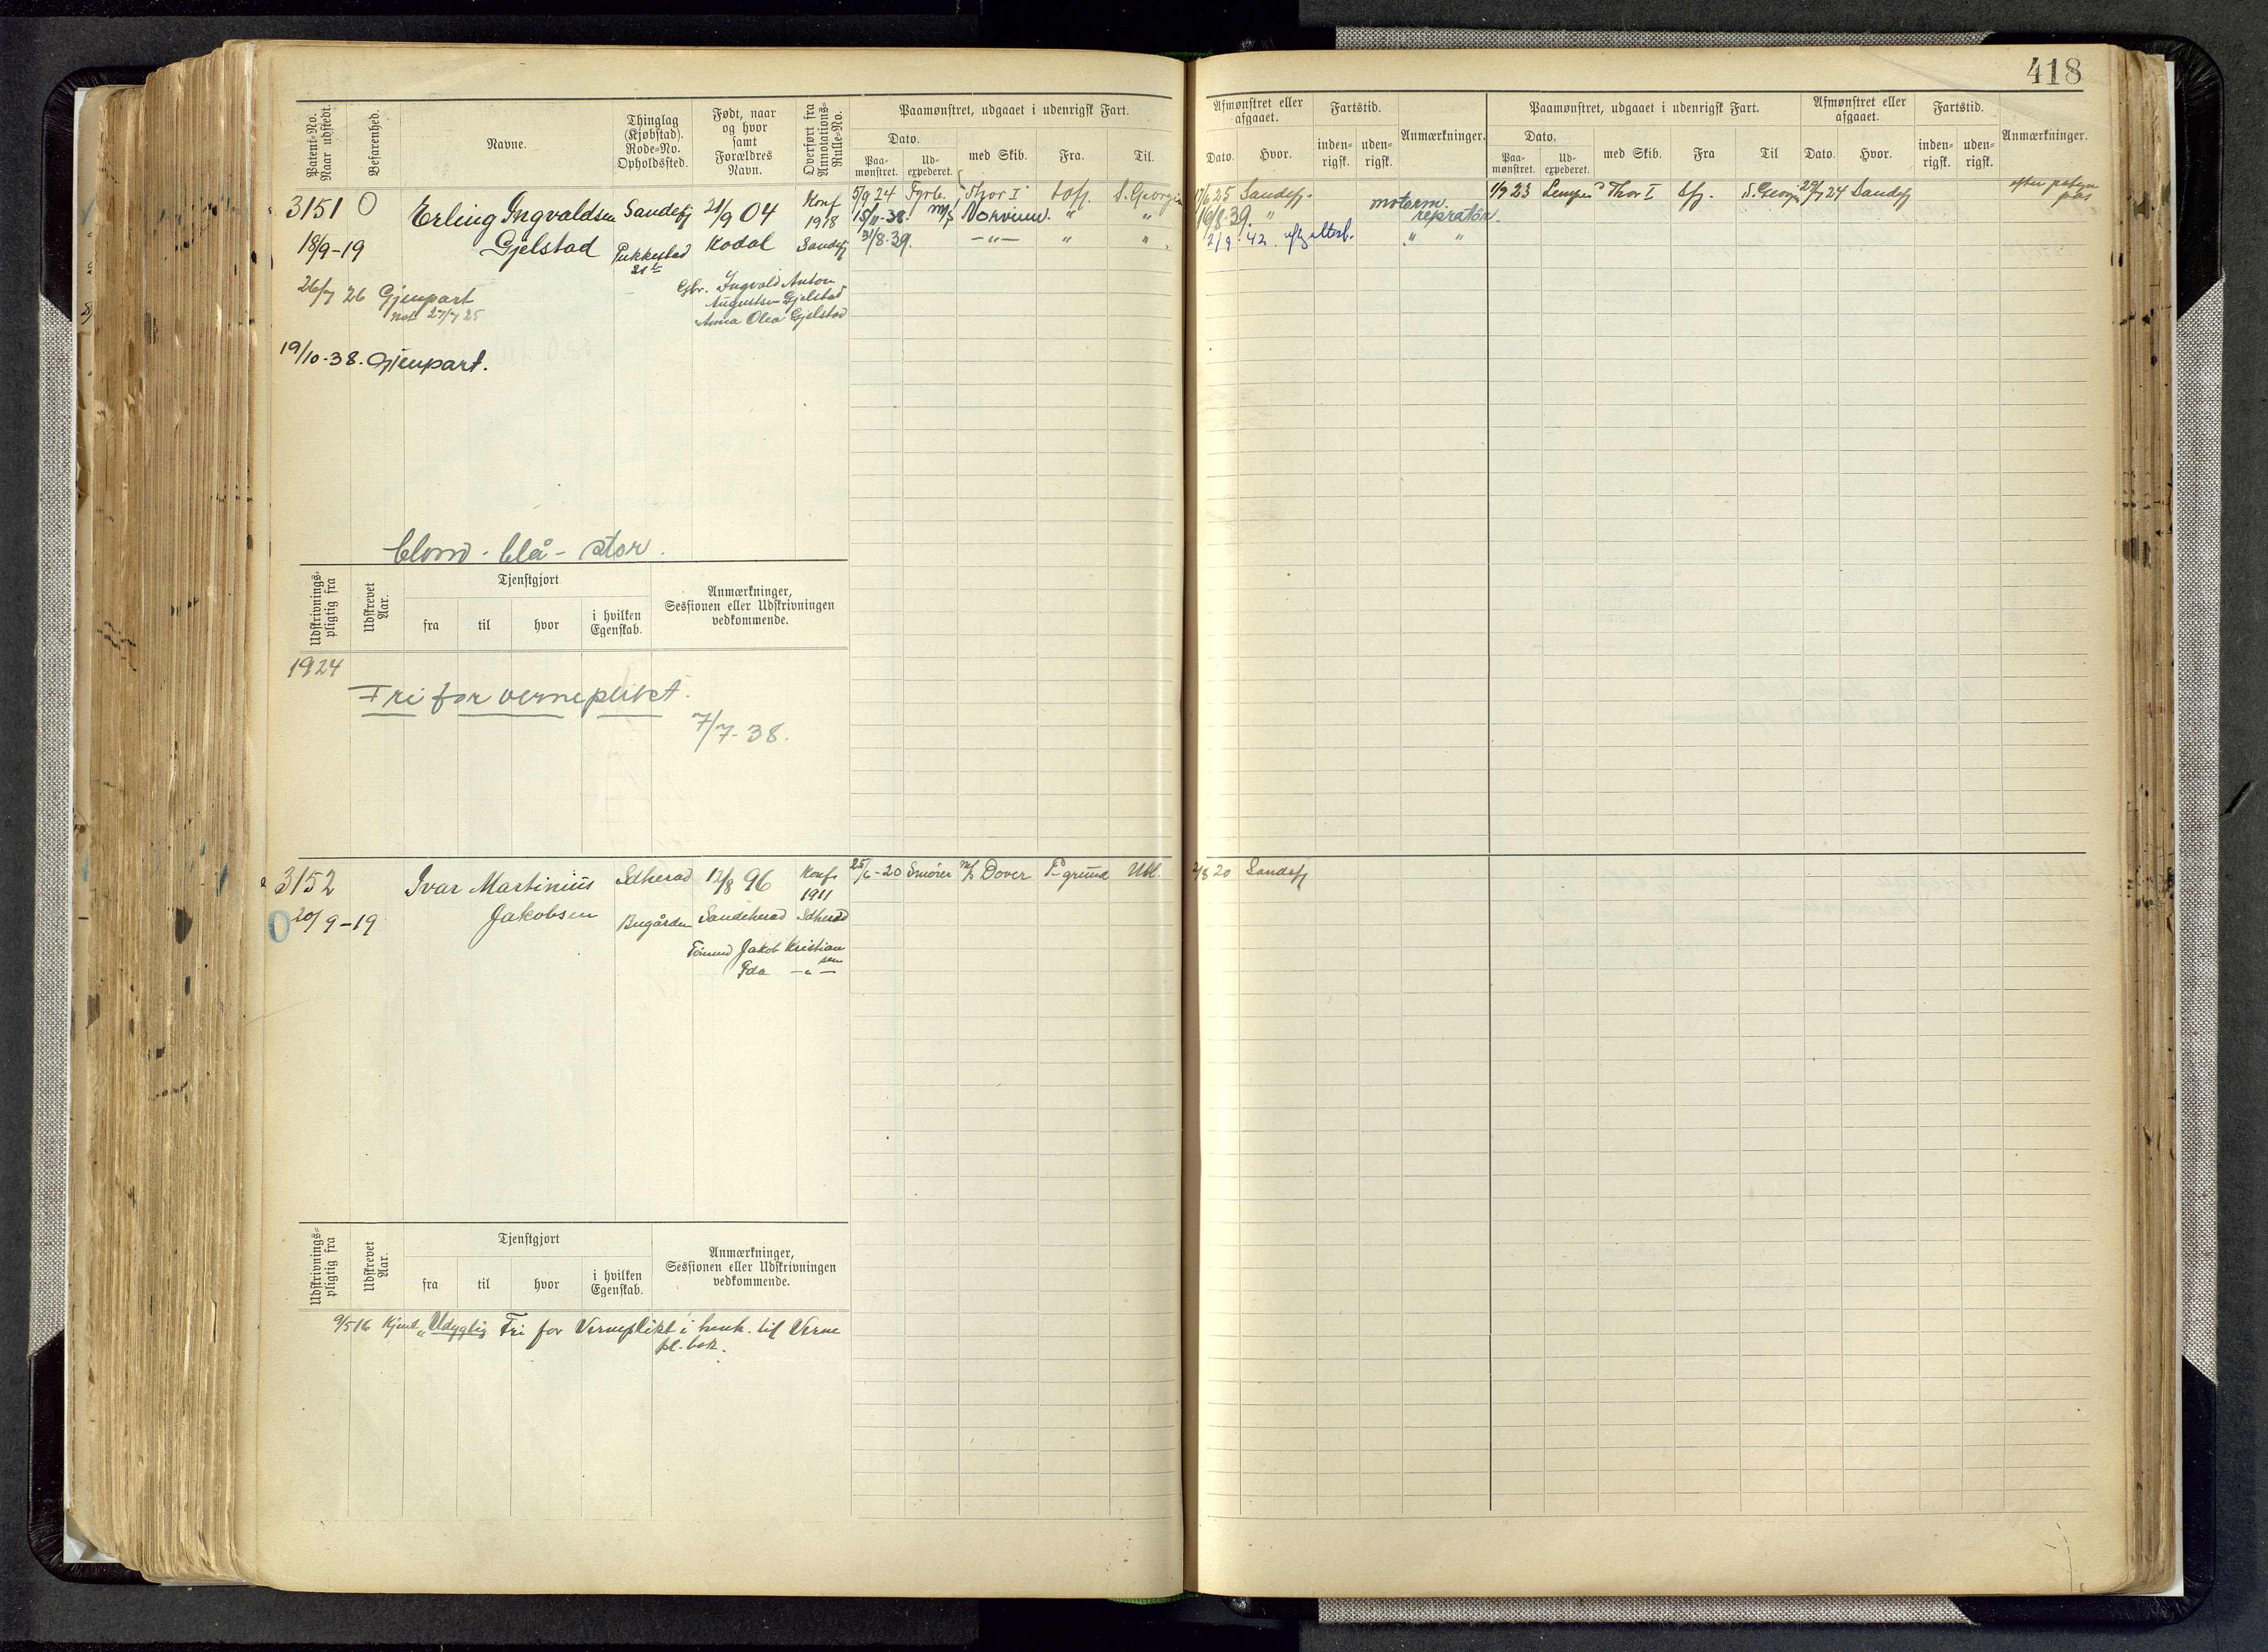 418
Patent-No. Naar udstedt.
Befarenhed.
Navne.
Thinglag (Kjøbstad). Rode-No. Opholdssted.
Født, naar og hvor samt Forældres Navn.
Overført fra Annotations-Rulle-No.
Paamønstret, udgaaet i udenrigsk Fart.
Dato.
Paa-mønstret.
Ud-expederet.
med Skib.
Fra.
Til.
Afmønstret eller afgaaet.
Dato.
Hvor.
Fartstid.
inden-rigsk.
uden-rigsk.
Anmærkninger.
Paamønstret, udgaaet i udenrigsk Fart.
Dato.
Paa-mønstret.
Ud-expederet.
med Skib.
Fra
Til
Afmønstret eller afgaaet.
Dato.
Hvor.
Fartstid.
inden-rigsk.
uden-rigsk.
Anmærkninger.
3151 O Erling Ingvaldsen Sandefj 21/9 04 Konf 1918
18/9-19 Gjelstad Pukkestad Kodal Sandefj
21 b
26/7 26 Gjenpart
not 27/7 25
Gbr. Ingvald Anton
Augustsen Gjelstad
Anna Olea Gjelstad
19/10-38. Gjenpart.
5/9 24 Fyrb. Thor I Sdfj. S. Georgia 17/6 25 Sandefj.
15/11-38. m/s Norvinn. " " 16/8-39. " motorm. repratør.
31/8-39. -"- " " 2/9-42. " "
1/9 23 Lemper Thor I Sfj. S. Georgia 27/7 24 Sandefj
blond - blå - stor.
Udskrivnings-pligtig fra
Udskrevet Aar.
Tjenstgjort
fra
til
hvor
i hvilken Egenskab.
Anmærkninger, Sessionen eller Udskrivningen vedkommende.
1924
Fri for verneplikt.
7/7-38.
3152 Ivar Martinius Sdherad 12/8 96 Konf. 1911
O 20/9-19 Jakobsen Bugården Sandeherad Sdherad
Tømmd Jakob Kristian
sen
Ida -"-
25/6-20 Smører m/s Dover P-grund Utl. 2/8 20 Sandefj
Udskrivnings-pligtig fra
Udskrevet Aar.
Tjenstgjort
fra
til
hvor
i hvilken Egenskab.
Anmærkninger, Sessionen eller Udskrivningen vedkommende.
9/5 16 Kjent "Udygtig Fri for Verneplikt i henh. til Verne
pl-bok.